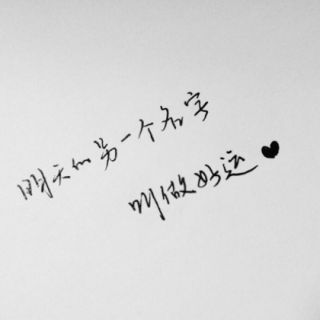 明天的另一个名字
叫做好运